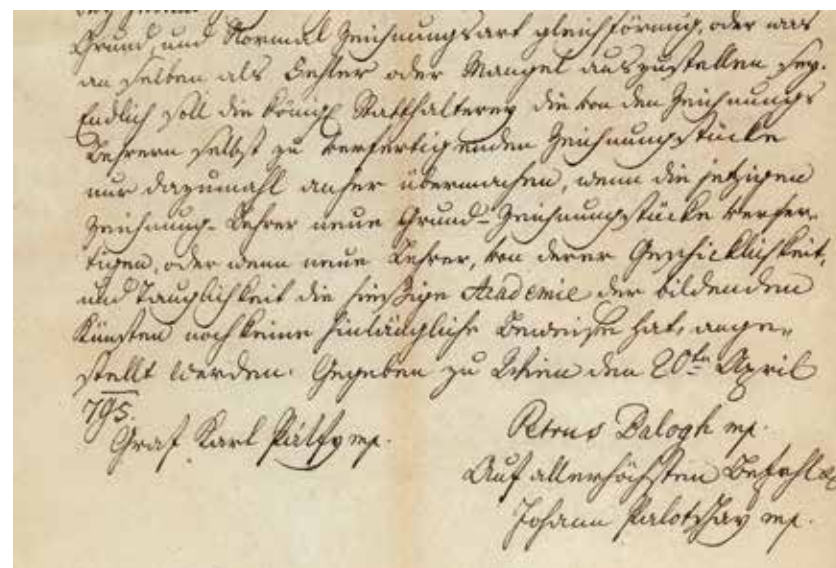 Grund, und Normal Zeichnungsart gleichförmig, oder was
an selben als Fehler oder Mangel auszustellen sey.
Endlich soll die königl Statthalterey die von den Zeichnungs
Lehrern selbst zu verfertigenden Zeichnungsstücke
nur dazumahl anher übermachen, wenn die jetzigen
Zeichnung-Lehrer neue Grund-Zeichnungsstücke verfer-
tigen, oder wenn neue Lehrer, von derer Geschicklichkeit,
und Tauglichkeit die hiesige Academie der bildenden
Künsten noch keine hinlängliche Beweise hat, ange-
stellt werden. Gegeben zu Wien den 20ten April
795.
Graf Karl Pálfy mp.
Petrus Balogh mp.
Auf allerhöchsten Befehl
Johann Palotshay mp.